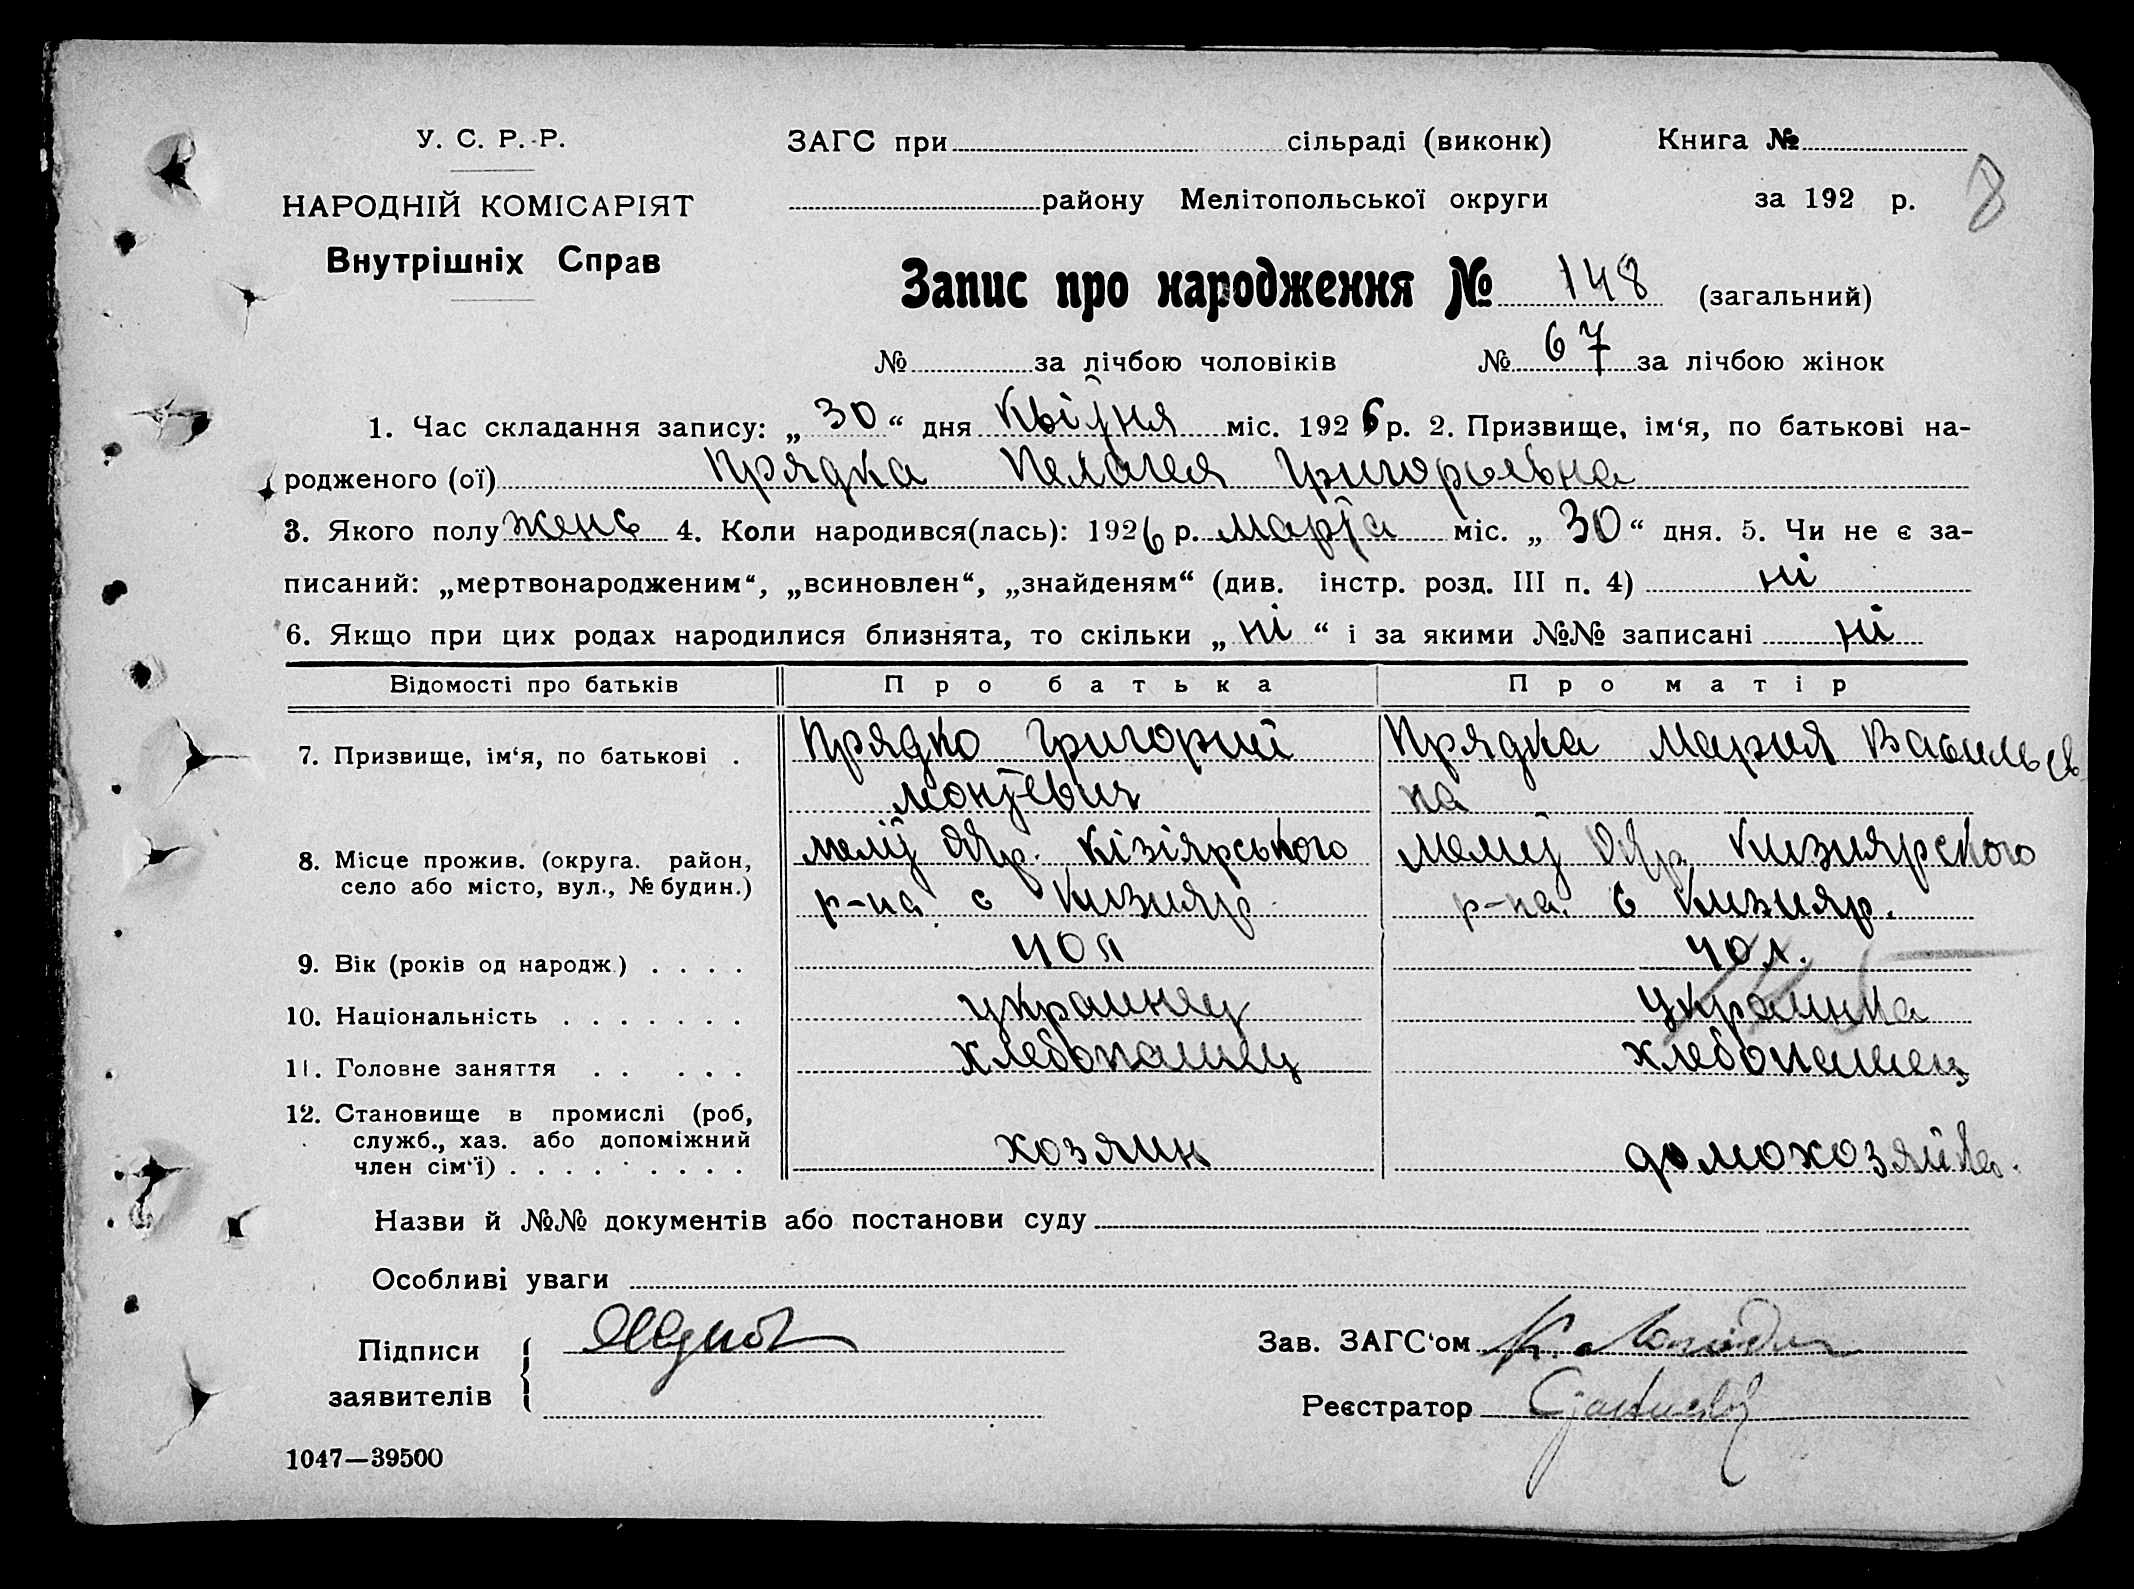 У. С. Р. Р.
НАРОДНІЙ КОМІСАРІЯТ
Внутрішніх Справ
ЗАГС при сільраді (виконк) Книга №
району Мелітопольської округи за 192 р.
8
Запис про народження № 148 (загальний)
№ за лічбою чоловіків № 67 за лічбою жінок
1. Час складання запису: „30“ дня Квітня міс. 1926 р. 2. Призвище, ім‘я, по батькові на-
родженого (ої) Прядка Пелагея Григорьевна
3. Якого полу женс 4. Коли народився(лась): 1926 р. марта міс. „30“ дня. 5. Чи не є за-
писаний: „мертвонародженим“, „всиновлен“, „знайденям“ (див. інстр. розд. III п. 4) ні
6. Якщо при цих родах народилися близнята, то скільки „ні“ і за якими №№ записані ні
Відомості про батьків Про батька Про матір
7. Призвище, ім‘я, по батькові . Прядко Григорий Прядка Мария Васильев
на
8. Місце прожив. (округа. район, Меліт Окр. Кізіярського Мелит Окр Кизиярского
село або місто, вул., № будин.) р-на с Кизияр р-на с Кизияр.
9. Вік (років од народж.) . . . . 40 л 40 л.
10. Національність . . . . . . . украинец украинка
11. Головне заняття . . . . . хлебопашец хлебопашец
12. Становище в промислі (роб,
служб., хаз. або допоміжний хозяин домохозяйка.
член сім‘ї) . . . . . . . . .
Назви й №№ документів або постанови суду
Особливі уваги
Підписи
заявителів
Зав. ЗАГС‘ом К.
Реєстратор
1047—39500